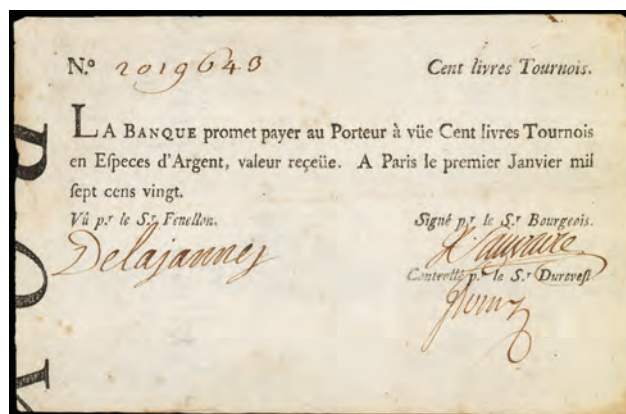 N.º 2019643 Cent livres Tournois.
LA BANQUE promet payer au Porteur à vüe Cent livres Tournois
en Eſpeces d'Argent, valeur reçeüe. A Paris le premier Janvier mil
ſept cens vingt.
Vû p.r le S.r Fenellon. Signé p.r le S.r Bourgeois.
Delajanney
Controllé p.r le S.r Dureveſt